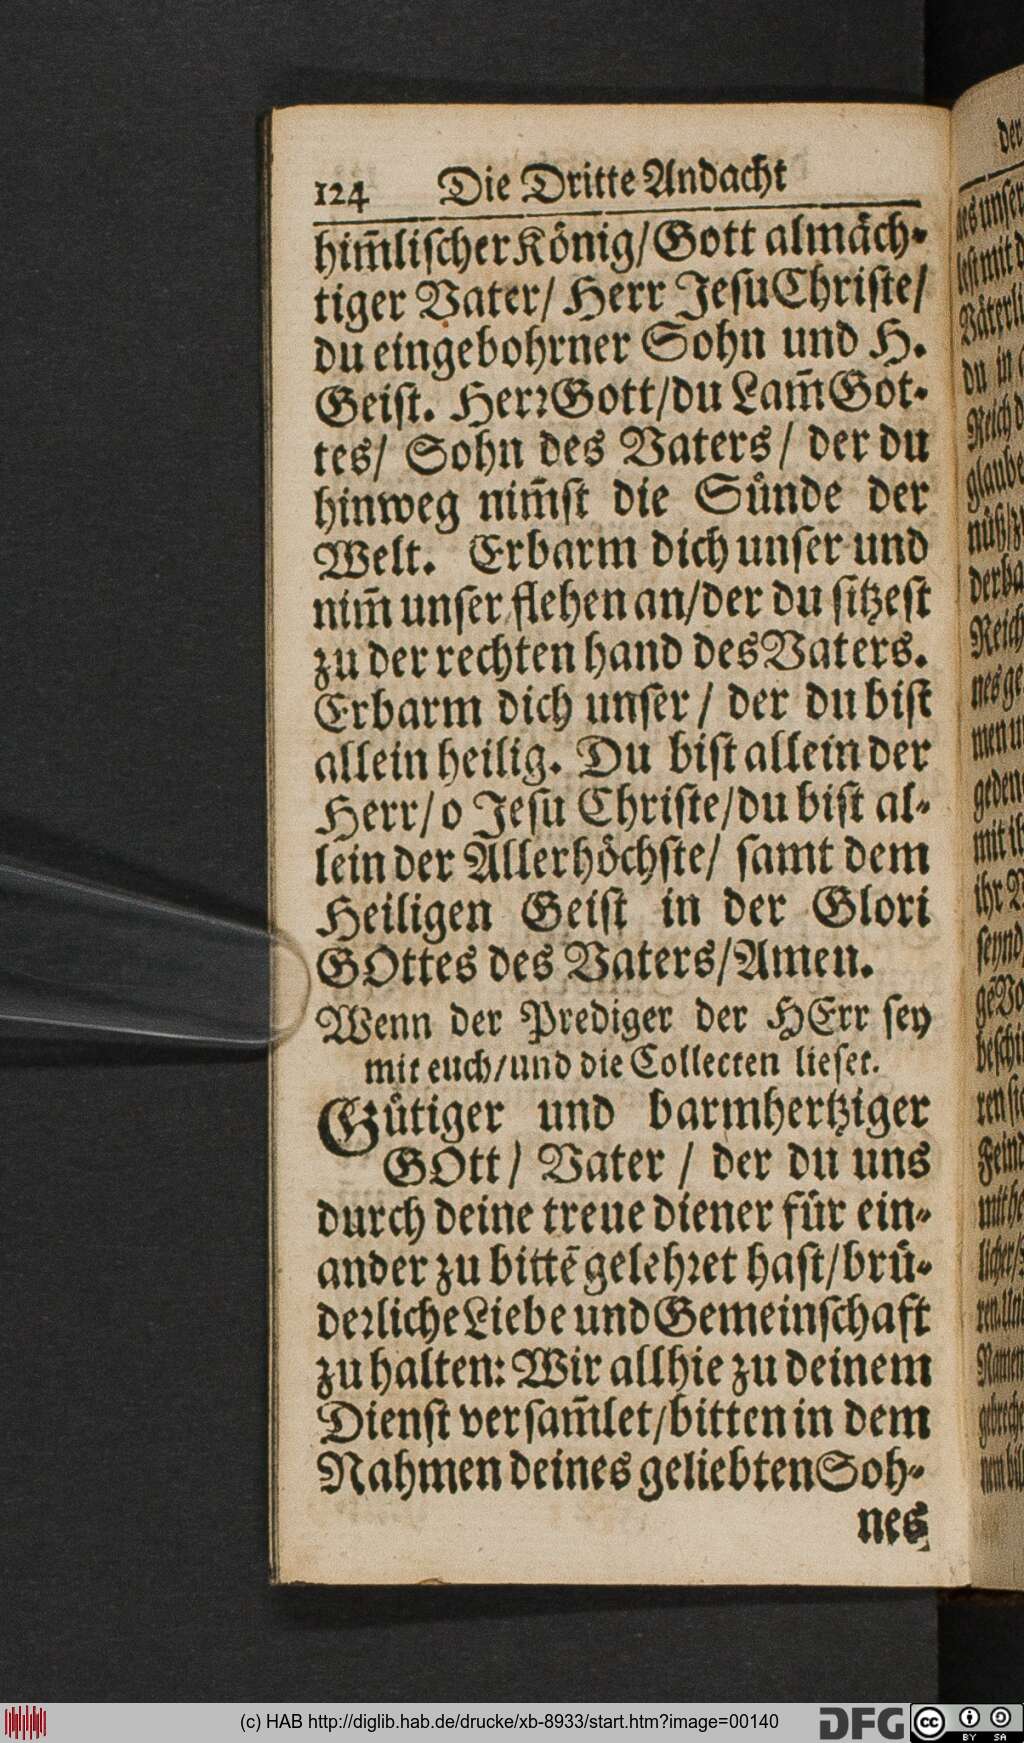 124 Die Dritte Andacht
him̃lischer König/Gott almäch-
tiger Vater/ Herr Jesu Christe/
du eingebohrner Sohn und H.
Geist. Herꝛ Gott/du Lam̃ Got-
tes/ Sohn des Vaters/ der du
hinweg nim̃st die Sünde der
Welt. Erbarm dich unser und
nim̃ unser flehen an/der du sitzest
zu der rechten hand des Vaters.
Erbarm dich unser/ der du bist
allein heilig. Du bist allein der
Herr/o Jesu Christe/du bist al-
lein der Allerhöchste/ samt dem
Heiligen Geist in der Glori
GOttes des Vaters/Amen.
Wenn der Prediger der HErr sey
mit euch/und die Collecten lieset.
Gütiger und barmhertziger
GOtt/ Vater/ der du uns
durch deine treue diener für ein-
ander zu bittē gelehꝛet hast/brü-
deꝛliche Liebe und Gemeinschaft
zu halten: Wir allhie zu deinem
Dienst versam̃let/bitten in dem
Nahmen deines geliebten Soh-
nes
(c) HAB http://diglib.hab.de/drucke/xb-8933/start.htm?image=00140
DFG
cc BY SA